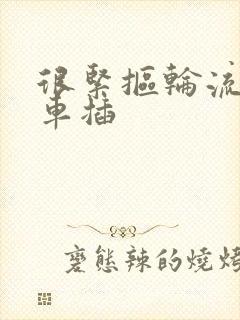 很緊摳輪流
車插
褒態辣的燒烤